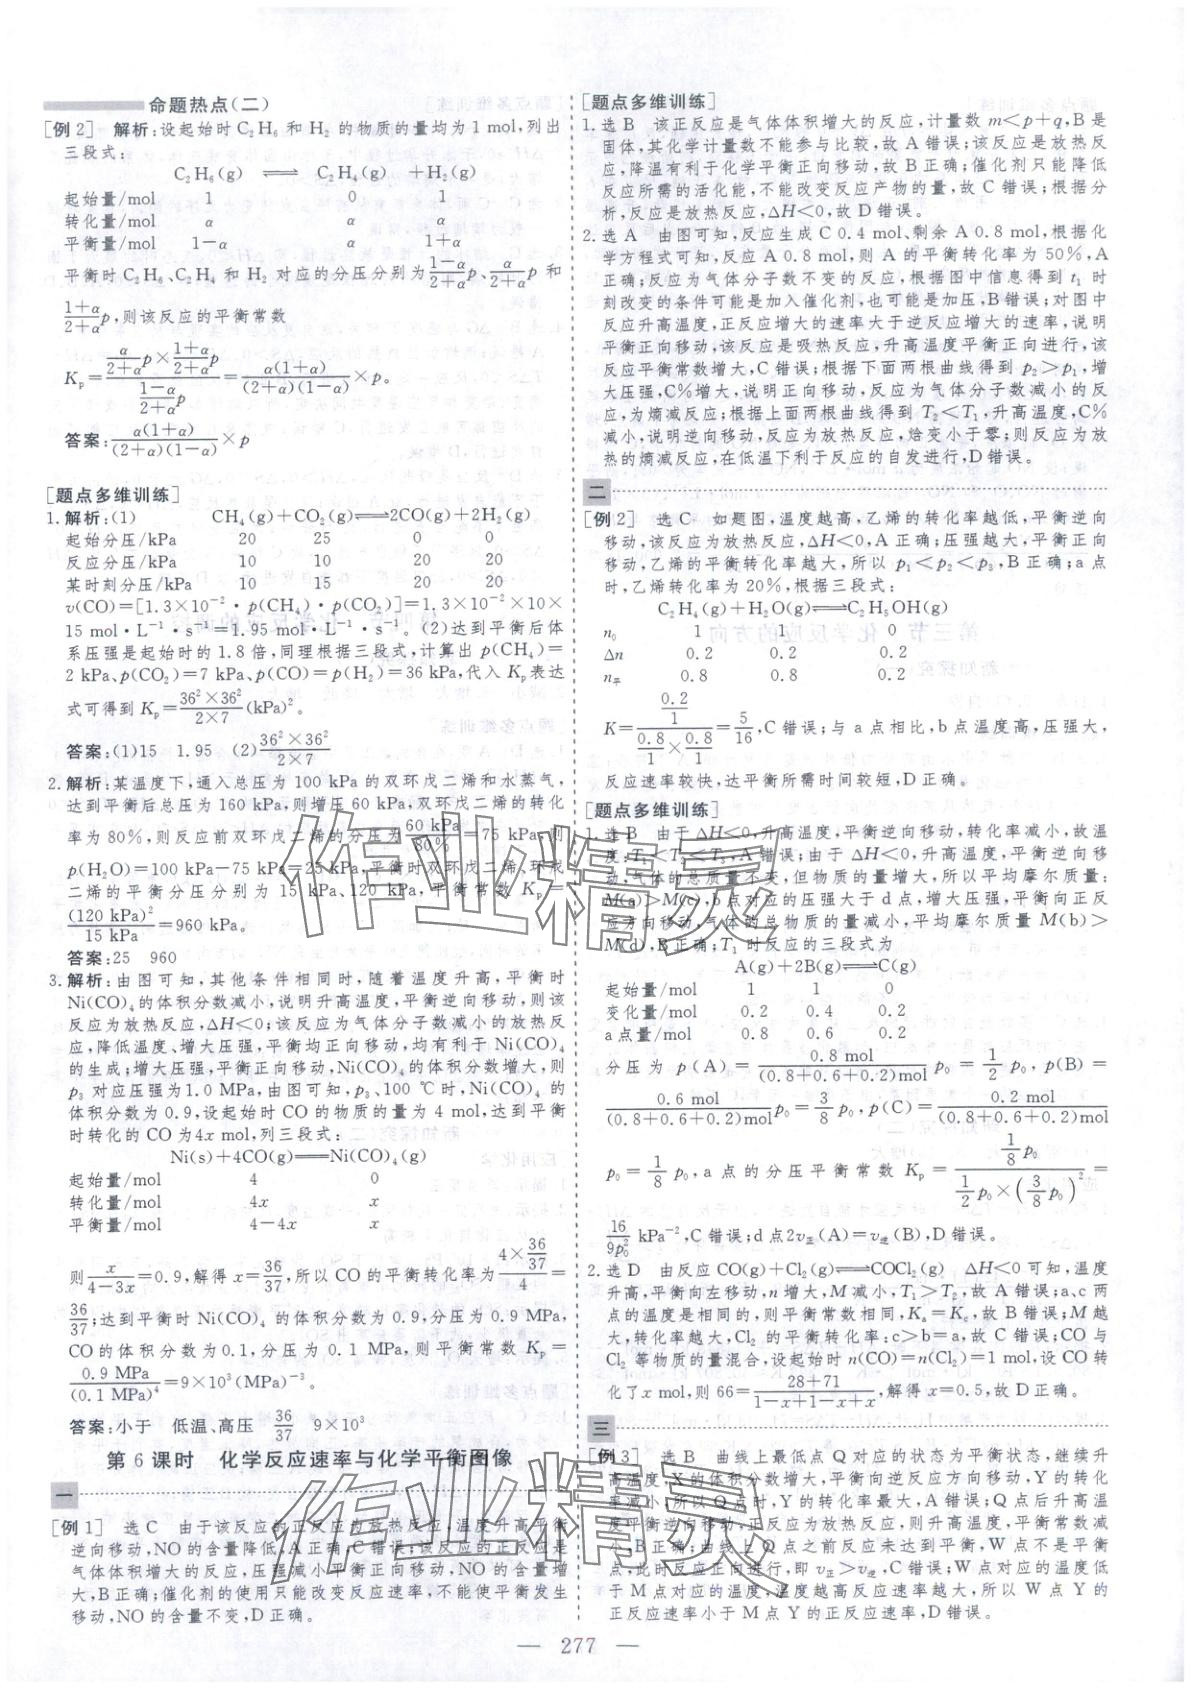 命题热点(二)
[例2] 解析:设起始时C₂H₆和H₂的物质的量均为1 mol,列出
三段式:
C₂H₆(g) ⇌ C₂H₄(g) +H₂(g)
起始量/mol 1 0 1
转化量/mol α α α
平衡量/mol 1-α α 1+α
平衡时C₂H₆、C₂H₄和H₂对应的分压分别为(1-α)/(2+α)p、α/(2+α)p和
(1+α)/(2+α)p,则该反应的平衡常数
Kₚ=[α/(2+α)p×(1+α)/(2+α)p]/[(1-α)/(2+α)p]=α(1+α)/[(2+α)(1-α)]×p。
答案:α(1+α)/[(2+α)(1-α)]×p
[题点多维训练]
1.解析:(1) CH₄(g)+CO₂(g)⇌2CO(g)+2H₂(g)
起始分压/kPa 20 25 0 0
反应分压/kPa 10 10 20 20
某时刻分压/kPa 10 15 20 20
v(CO)=[1.3×10⁻²·p(CH₄)·p(CO₂)]=1.3×10⁻²×10×
15 mol·L⁻¹·s⁻¹=1.95 mol·L⁻¹·s⁻¹。(2)达到平衡后体
系压强是起始时的1.8倍,同理根据三段式,计算出p(CH₄)=
2 kPa、p(CO₂)=7 kPa、p(CO)=p(H₂)=36 kPa,代入Kₚ表达
式可得到Kₚ=(36²×36²)/(2×7)(kPa)²。
答案:(1)15 1.95 (2)(36²×36²)/(2×7)
2.解析:某温度下,通入总压为100 kPa的双环戊二烯和水蒸气,
达到平衡后总压为160 kPa,则增压60 kPa,双环戊二烯的转化
率为80%,则反应前双环戊二烯的分压为60 kPa/80%=75 kPa,则
p(H₂O)=100 kPa-75 kPa=25 kPa,平衡时双环戊二烯、环戊
二烯的平衡分压分别为15 kPa、120 kPa,平衡常数Kₚ=
(120 kPa)²/15 kPa=960 kPa。
答案:25 960
3.解析:由图可知,其他条件相同时,随着温度升高,平衡时
Ni(CO)₄的体积分数减小,说明升高温度,平衡逆向移动,则该
反应为放热反应,ΔH<0;该反应为气体分子数减小的放热反
应,降低温度、增大压强,平衡均正向移动,均有利于Ni(CO)₄
的生成;增大压强,平衡正向移动,Ni(CO)₄的体积分数增大,则
p₃对应压强为1.0 MPa,由图可知,p₃、100 ℃时,Ni(CO)₄的
体积分数为0.9,设起始时CO的物质的量为4 mol,达到平衡
时转化的CO为4x mol,列三段式:
Ni(s)+4CO(g)⇌Ni(CO)₄(g)
起始量/mol 4 0
转化量/mol 4x x
平衡量/mol 4-4x x
则x/(4-3x)=0.9,解得x=36/37,所以CO的平衡转化率为(4×36/37)/4=
36/37;达到平衡时Ni(CO)₄的体积分数为0.9,分压为0.9 MPa,
CO的体积分数为0.1,分压为0.1 MPa,则平衡常数Kₚ=
0.9 MPa/(0.1 MPa)⁴=9×10³(MPa)⁻³。
答案:小于 低温、高压 36/37 9×10³
第6课时 化学反应速率与化学平衡图像
一
[例1] 选C 由于该反应的正反应为放热反应,温度升高平衡
逆向移动,NO的含量降低,A正确,C错误;该反应的正反应是
气体体积增大的反应,压强减小平衡正向移动,NO的含量增
大,B正确;催化剂的使用只能改变反应速率,不能使平衡发生
移动,NO的含量不变,D正确。
[题点多维训练]
1.选B 该正反应是气体体积增大的反应,计量数m<p+q,B是
固体,其化学计量数不能参与比较,故A错误;该反应是放热反
应,降温有利于化学平衡正向移动,故B正确;催化剂只能降低
反应所需的活化能,不能改变反应产物的量,故C错误;根据分
析,反应是放热反应,ΔH<0,故D错误。
2.选A 由图可知,反应生成C 0.4 mol、剩余A 0.8 mol,根据化
学方程式可知,反应A 0.8 mol,则A的平衡转化率为50%,A
正确;反应为气体分子数不变的反应,根据图中信息得到t₁时
刻改变的条件可能是加入催化剂,也可能是加压,B错误;对图中
反应升高温度,正反应增大的速率大于逆反应增大的速率,说明
平衡正向移动,该反应是吸热反应,升高温度平衡正向进行,该
反应平衡常数增大,C错误;根据下面两根曲线得到p₂>p₁,增
大压强,C%增大,说明正向移动,反应为气体分子数减小的反
应,为熵减反应;根据上面两根曲线得到T₂<T₁,升高温度,C%
减小,说明逆向移动,反应为放热反应,焓变小于零;则反应为放
热的熵减反应,在低温下利于反应的自发进行,D错误。
二
[例2] 选C 如题图,温度越高,乙烯的转化率越低,平衡逆向
移动,该反应为放热反应,ΔH<0,A正确;压强越大,平衡正向
移动,乙烯的平衡转化率越大,所以p₁<p₂<p₃,B正确;a点
时,乙烯转化率为20%,根据三段式:
C₂H₄(g)+H₂O(g)⇌C₂H₅OH(g)
n₀ 1 1 0
Δn 0.2 0.2 0.2
n平 0.8 0.8 0.2
K=(0.2/1)/(0.8/1×0.8/1)=5/16,C错误;与a点相比,b点温度高,压强大,
反应速率较快,达平衡所需时间较短,D正确。
[题点多维训练]
1.选B 由于ΔH<0,升高温度,平衡逆向移动,转化率减小,故温
度:T₁<T₂<T₃,A错误;由于ΔH<0,升高温度,平衡逆向移
动,气体的总质量不变,但物质的量增大,所以平均摩尔质量:
M(a)>M(c),b点对应的压强大于d点,增大压强,平衡向正反
应方向移动,气体的总物质的量减小,平均摩尔质量M(b)>
M(d),B正确;T₁时反应的三段式为
A(g)+2B(g)⇌C(g)
起始量/mol 1 1 0
变化量/mol 0.2 0.4 0.2
a点量/mol 0.8 0.6 0.2
分压为p(A)=0.8 mol/(0.8+0.6+0.2)mol p₀=1/2 p₀,p(B)=
0.6 mol/(0.8+0.6+0.2)mol p₀=3/8 p₀,p(C)=0.2 mol/(0.8+0.6+0.2)mol
p₀=1/8 p₀,a点的分压平衡常数Kₚ=(1/8 p₀)/[1/2 p₀×(3/8 p₀)²]=
16/9p₀² kPa⁻²,C错误;d点2v正(A)=v逆(B),D错误。
2.选D 由反应CO(g)+Cl₂(g)⇌COCl₂(g) ΔH<0可知,温度
升高,平衡向左移动,n增大,M减小,T₁>T₂,故A错误;a、c两
点的温度是相同的,则平衡常数相同,Kₐ=K꜀,故B错误;M越
大,转化率越大,Cl₂的平衡转化率:c>b=a,故C错误;CO与
Cl₂等物质的量混合,设起始时n(CO)=n(Cl₂)=1 mol,设CO转
化了x mol,则66=(28+71)/(1-x+1-x+x),解得x=0.5,故D正确。
三
[例3] 选B 曲线上最低点Q对应的为平衡状态,继续升
高温度,X的体积分数增大,平衡向逆反应方向移动,Y的转化
率减小,所以Q点时,Y的转化率最大,A错误;Q点后升高温
度平衡逆向移动,正反应为放热反应,则升高温度,平衡常数减
小,B正确;曲线上Q点之前反应未达到平衡,W点不是平衡
点,此时反应正向进行,即v正>v逆,C错误;W点对应的温度低
于M点对应的温度,温度越高反应速率越大,所以W点Y的
正反应速率小于M点Y的正反应速率,D错误。
— 277 —
作业精灵
作业精灵